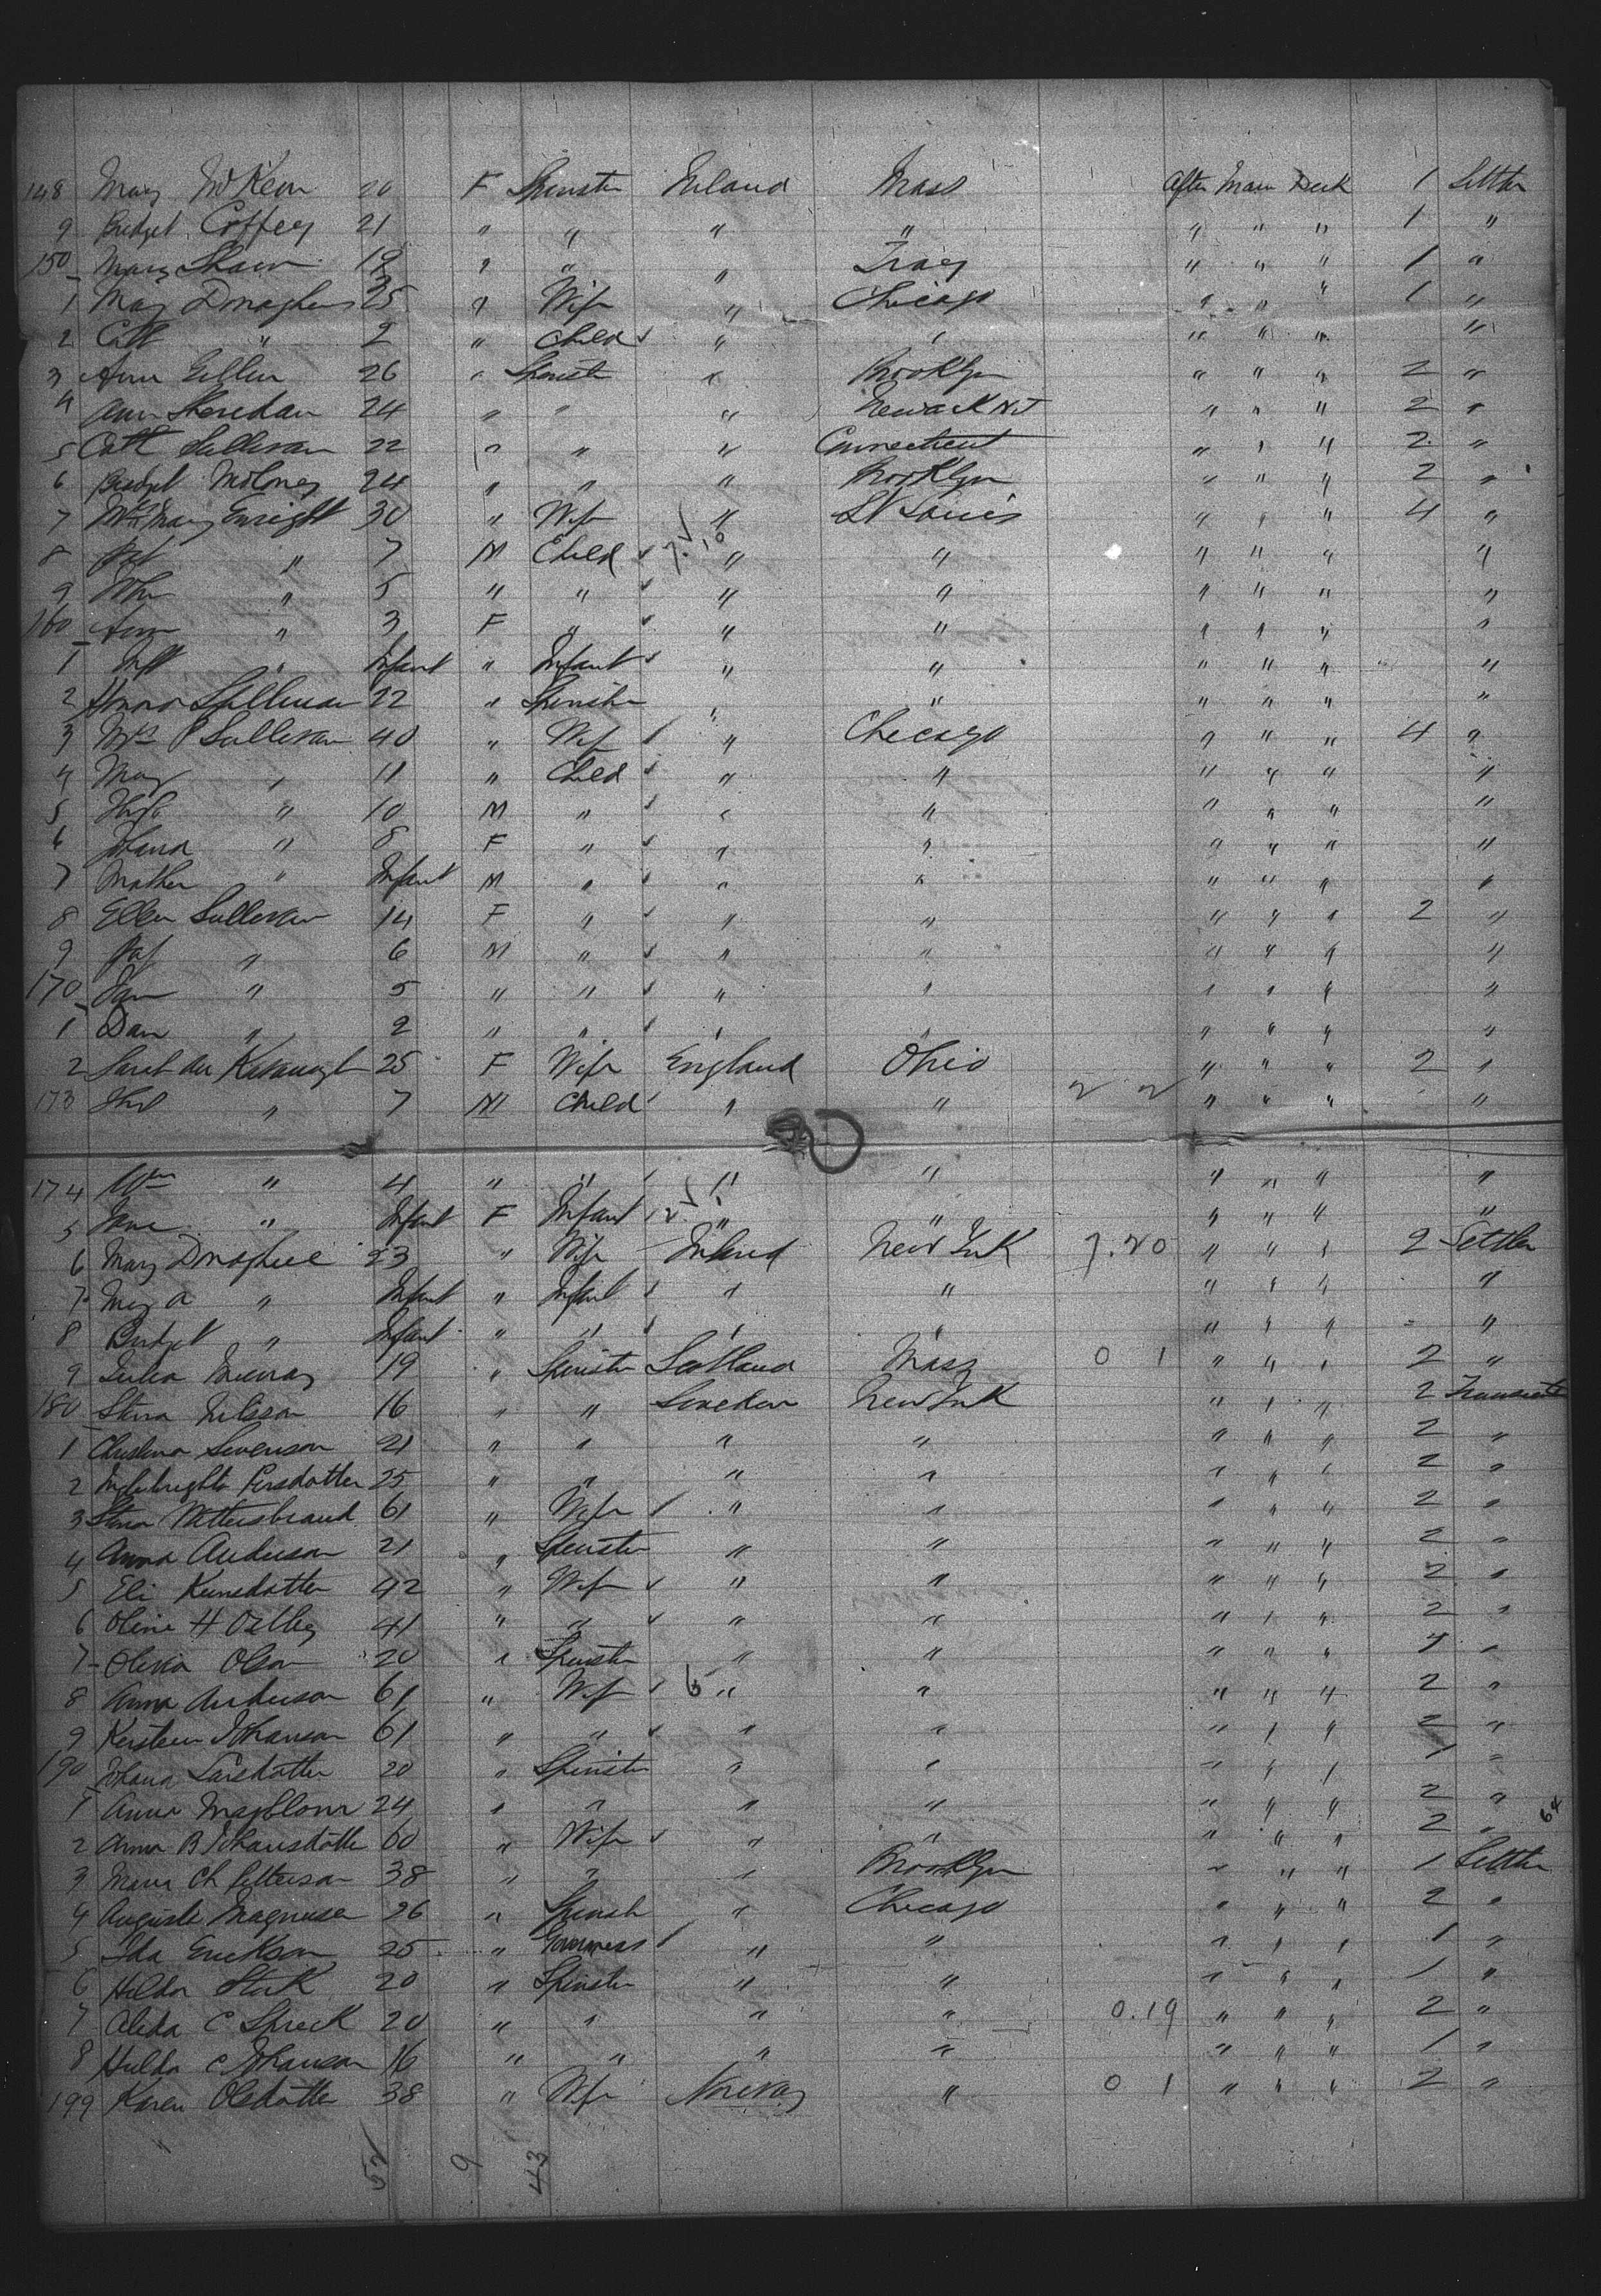 148 Mary McKeon 20 F Spinster Ireland Mass After Main Deck 1 Settler
9 Bridget Coffey 21 " " " " " " " 1 "
150 Mary Shaw 19 " " " Troy " " " 1 "
1 May Donaghue 25 " Wife " Chicago " " " 1 "
2 Cath " 2 " Child " " " " " "
3 Ann 26 " Spinster " Brooklyn " " " 2 "
4 Ann Sheridan 24 " " " Newack NJ " " " 2 "
5 Cath Sullivan 22 " " " Connecticut " " " 2 "
6 Bridget Moloney 24 " " " Brooklyn " " " 2 "
7 Mrs Mary Enright 30 " Wife " St Louis " " " 4 "
8 Pat " 7 M Child " " " " " "
9 " 5 " " " " " " " "
160 Ann " 3 F " " " " " " "
1 Inft " Infant " Infant " " " " " "
2 Honora Sullivan 22 " Spinster " " " " " "
3 Mrs P Sullivan 40 " Wife " Chicago " " " 4 "
4 May " 11 " Child " " " " " "
5 " 10 M " " " " " " "
6 Johana " 8 F " " " " " " "
7 Mathew " Infant M " " " " " " "
8 Ellen Sullivan 14 F " " " " " " 2 "
9 Pat " 6 M " " " " " " "
170 " 5 " " " " " " " "
1 Dan " 2 " " " " " " " "
2 Sarah Ann Kavanagh 25 F Wife England Ohio " " " 2 "
173 " 7 M Child " " " " " "
174 Wm " 4 " " " " " " " "
5 Jane " Infant F Infant " " " " " "
6 Mary Donaghue 23 " Wife Ireland New York 7.20 " " " 2 Settler
7 May A " Infant " Infant " " " " " "
8 Bridget " Infant " " " " " " " "
9 Julia Murray 19 " Spinster Scotland Mass 0 1 " " " 2 "
180 Stina Nilsson 16 " " Sweden New York " " " 2 Transient
1 Christina Swenson 21 " " " " " " " 2 "
2 Persdotter 25 " " " " " " " 2 "
3 Stina 61 " Wife " " " " " 2 "
4 Anna Anderson 21 " Spinster " " " " " 2 "
5 Eli 42 " Wife " " " " " 2 "
6 Oline H 41 " " " " " " " 2 "
7 Olivia Olson 20 " Spinster " " " " " "
8 Anna Anderson 61 " Wife 6 " " " " " 2 "
9 Kersteen Johanson 61 " " " " " " " 2 "
190 Johana Larsdotter 20 " Spinster " " " " " 1 "
1 Anna Magblom 24 " " " " " " " 2 "
2 Anna B Johansdotter 60 " Wife " " " " " 2 " 64
3 Maria Ch Petterson 38 " " " Brooklyn " " " 1 Settler
4 Auguste Magnusen 26 " Spinster " Chicago " " " 2 "
5 Ida Erickson 25 " Governess " " " " " 1 "
6 Hilda Stark 20 " Spinster " " " " " 1 "
7 Alida C Shreck 20 " " " " 0.19 " " " 2 "
8 Hulda C Johanson 16 " " " " " " " 1 "
199 Karen Olsdotter 38 " Wife Norway " 0 1 " " " 2 "
52 9 43